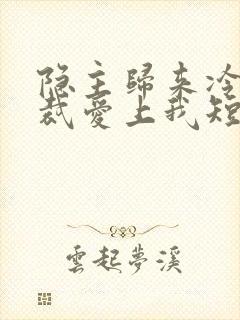 隐主歸来冷
裁愛上我短
雲起夢溪